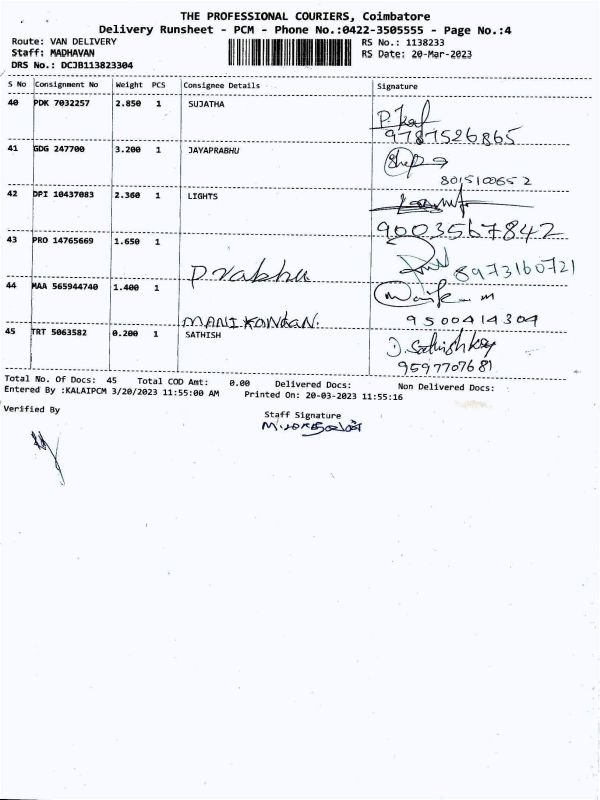 THE PROFESSIONAL COURIERS, Coimbatore
Delivery Runsheet - PCM - Phone No.:0422-3505555 - Page No.:4
Route: VAN DELIVERY
RS No.: 1138233
Staff: MADHAVAN
RS Date: 20-Mar-2023
DRS No.: DCJB113823304
S No Consignment No Weight PCS Consignee Details Signature
40 PDK 7032257 2.850 1 SUJATHA
9787526865
41 GDG 247700 3.200 1 JAYAPRABHU
8015100652
42 DPI 10437083 2.360 1 LIGHTS
9003567842
43 PRO 14765669 1.650 1
Prabhu 8973160721
44 MAA 565944740 1.400 1
MANIKANDAN. 9500414304
45 TRT 5063582 0.200 1 SATHISH
9597707681
Total No. Of Docs: 45 Total COD Amt: 0.00 Delivered Docs: Non Delivered Docs:
Entered By :KALAIPCM 3/20/2023 11:55:00 AM Printed On: 20-03-2023 11:55:16
Verified By
Staff Signature